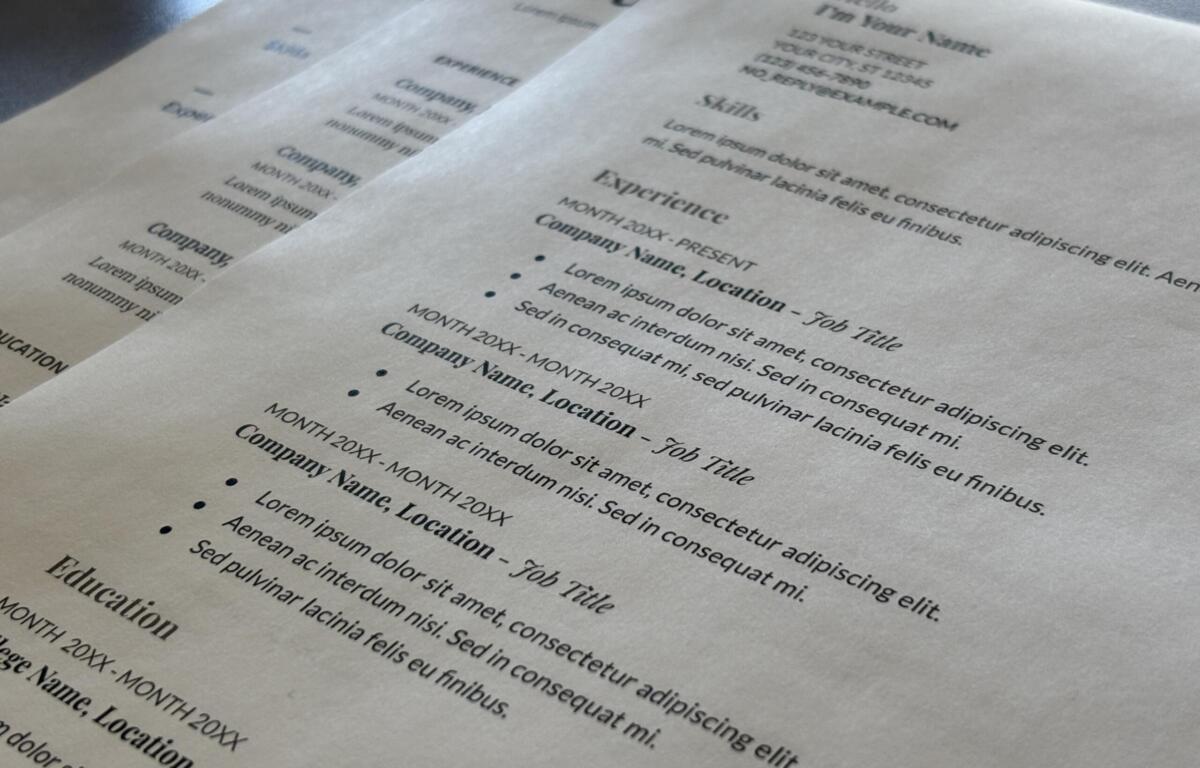 Hello
I'm Your Name
123 YOUR STREET
YOUR CITY, ST 12345
(123) 456-7890
NO_REPLY@EXAMPLE.COM
Skills
Lorem ipsum dolor sit amet, consectetur adipiscing elit. Aen
mi. Sed pulvinar lacinia felis eu finibus.
Experience
MONTH 20XX - PRESENT
Company Name, Location – Job Title
● Lorem ipsum dolor sit amet, consectetur adipiscing elit.
● Aenean ac interdum nisi. Sed in consequat mi.
● Sed in consequat mi, sed pulvinar lacinia felis eu finibus.
MONTH 20XX - MONTH 20XX
Company Name, Location – Job Title
● Lorem ipsum dolor sit amet, consectetur adipiscing elit.
● Aenean ac interdum nisi. Sed in consequat mi.
MONTH 20XX - MONTH 20XX
Company Name, Location – Job Title
● Lorem ipsum dolor sit amet, consectetur adipiscing elit.
● Aenean ac interdum nisi. Sed in consequat mi.
● Sed pulvinar lacinia felis eu finibus.
Education
MONTH 20XX - MONTH 20XX
llege Name, Location
dolor si
Lorem ipsum
EXPERIENCE
Company,
MONTH 20XX
Lorem ipsum
nonummy ni
Company,
MONTH 20XX -
Lorem ipsum
nonummy ni
Company,
MONTH 20XX -
Lorem ipsum
nonummy ni
UCATION
Skills
Experi